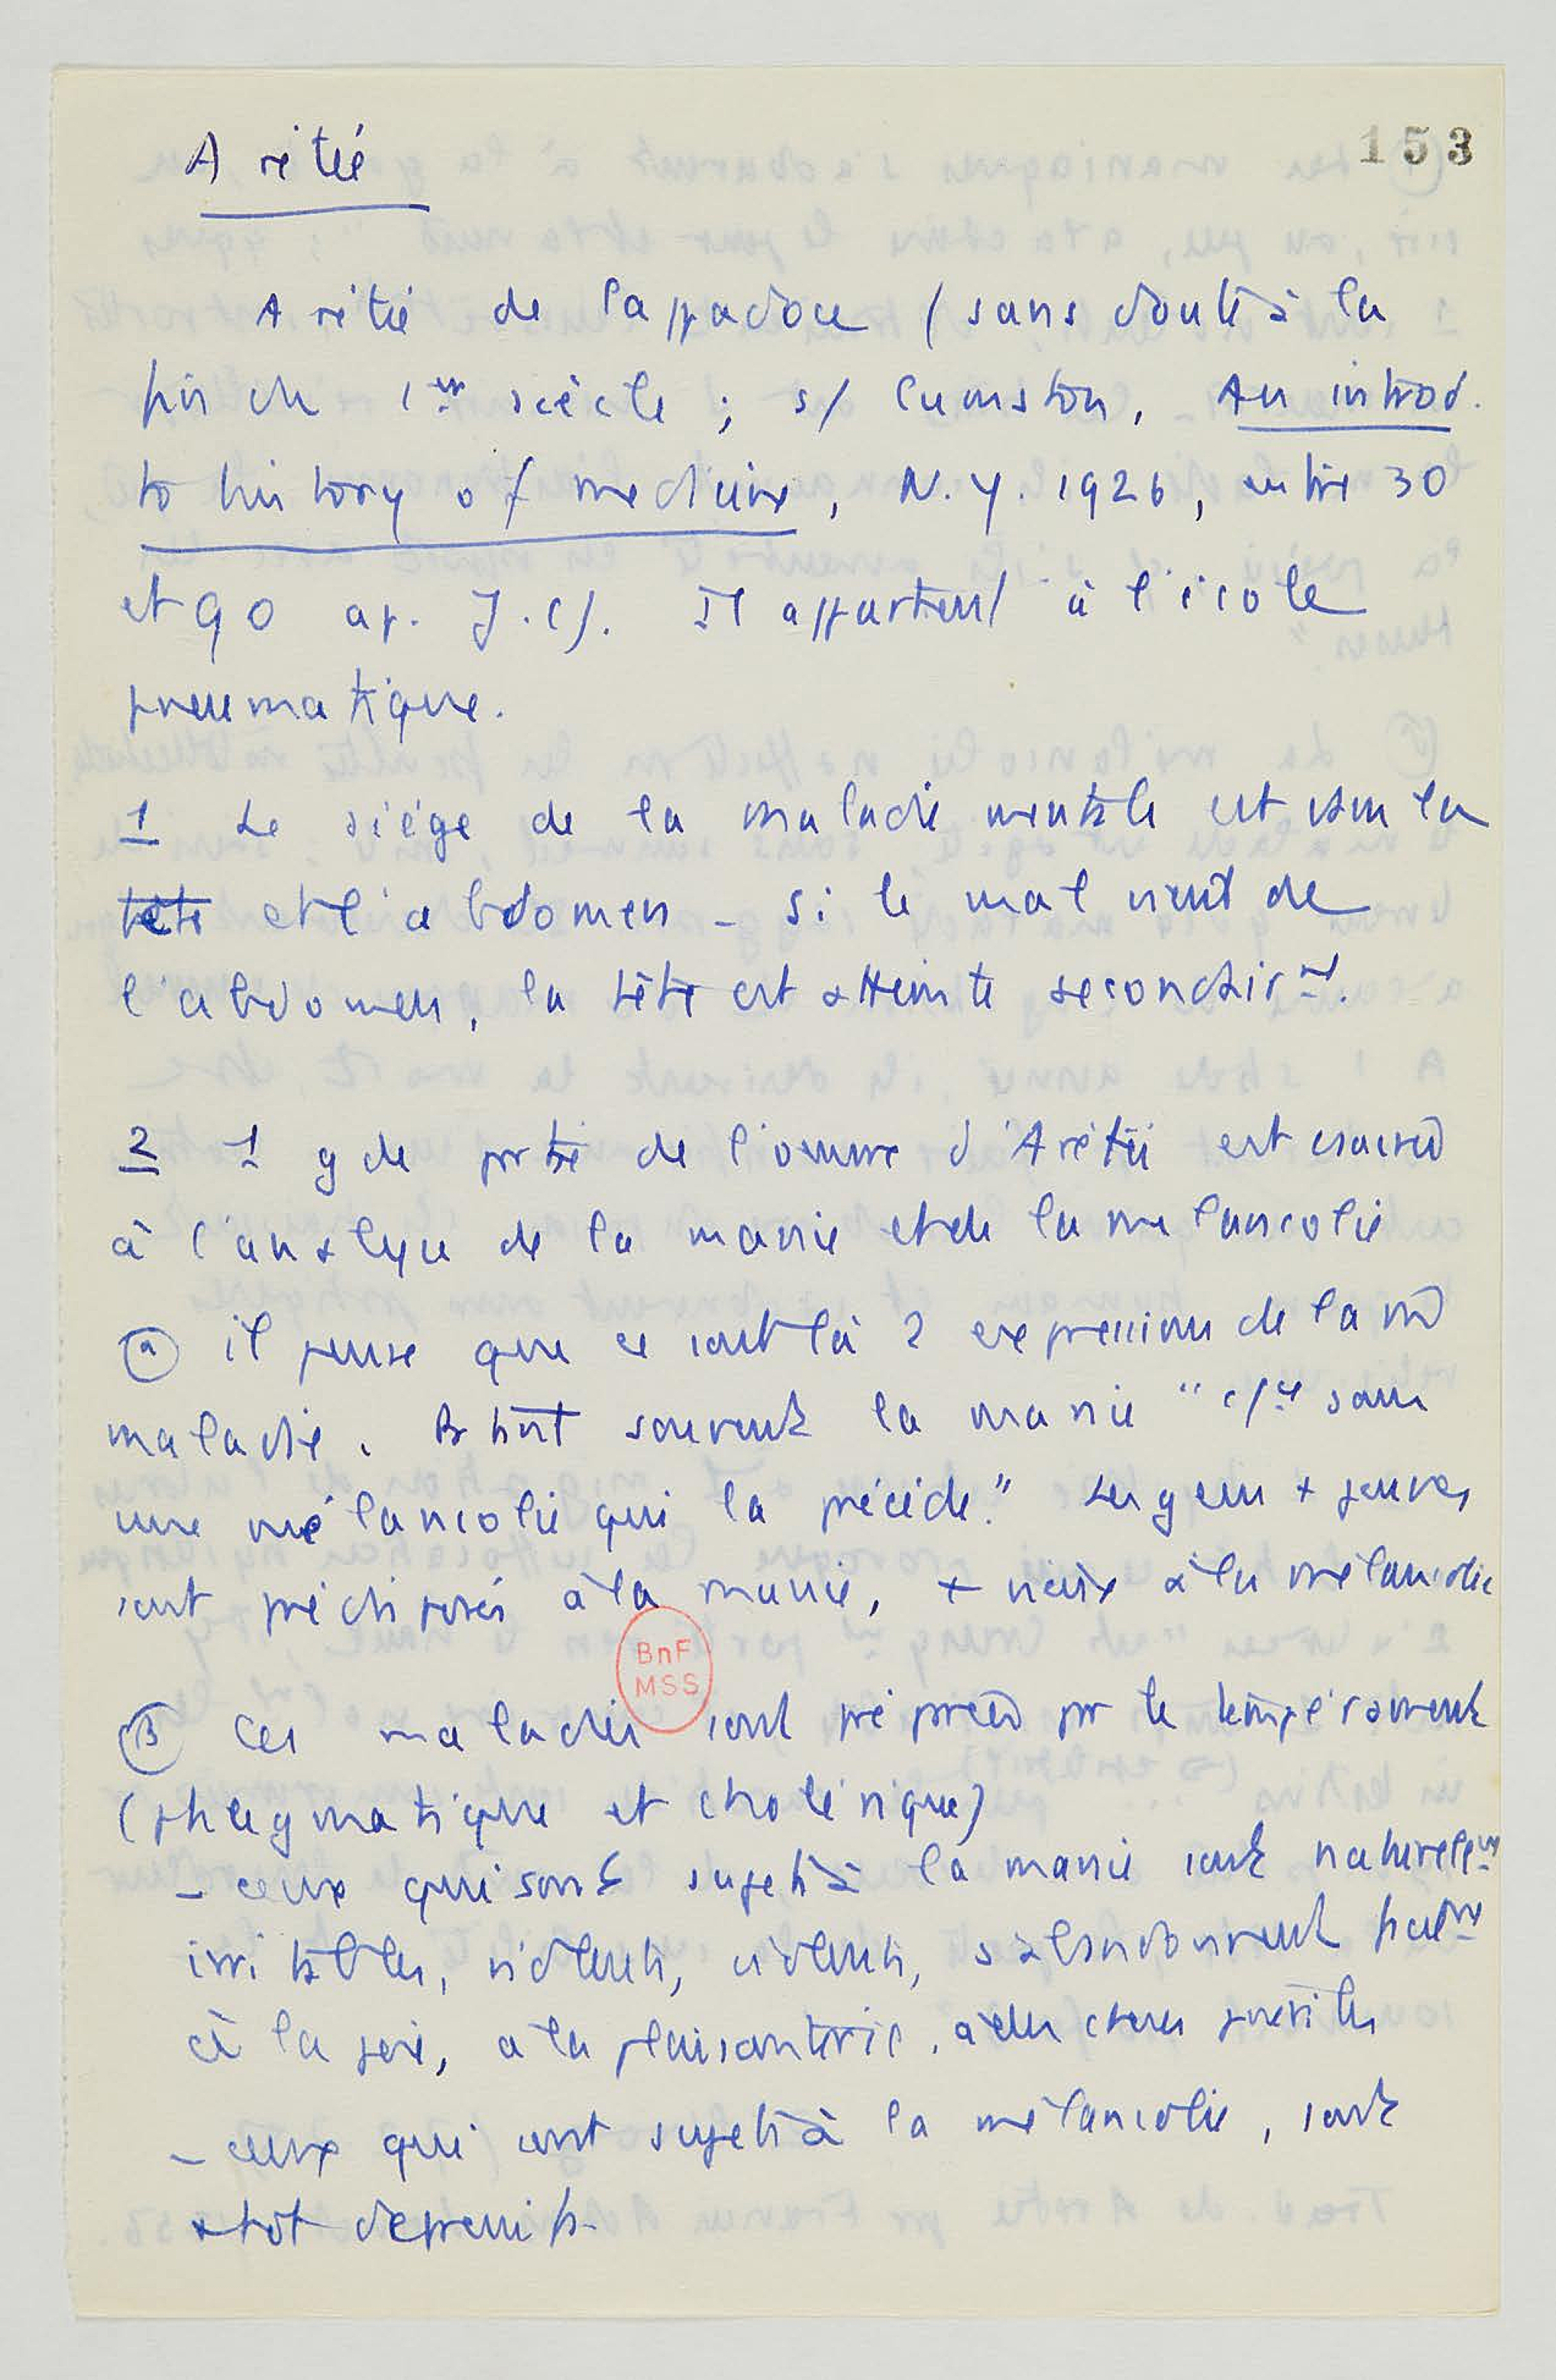 153
Arétée
Arétée de Cappadoce (sans doute à la
fin du 1er siècle ; s/ Cumston, An introd.
to history of medicine, N.Y. 1926, entre 30
et 90 ap. J.C). Il appartient à l'école
pneumatique.
1 Le siège de la maladie mentale est dans la
tête et l'abdomen - Si le mal vient de
l'abdomen, la tête est atteinte secondairt.
2 1 gde partie de l'œuvre d'Arétée est
à l'analyse de la manie et de la mélancolie
a il pense que ce sont là 2 expressions de la
maladie. souvent la manie " sans
une mélancolie qui la précède." Les gens + jeunes
sont prédisposés à la manie, + vieux à la mélancolie
BnF
MSS
B Ces maladies sont par le tempérament
(phlegmatique et cholérique)
- ceux qui sont sujets à la manie sont naturellemt
irritables, violents, s'abandonnent
à la joie, à la plaisanterie, à des choses puériles
- ceux qui sont sujets à la mélancolie, sont
+tôt dépressifs.